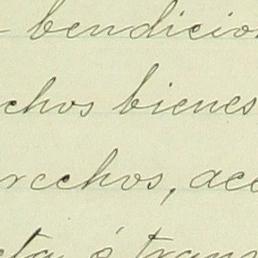 bendicio
chos bienes
rechos, acc
cta, ó trans